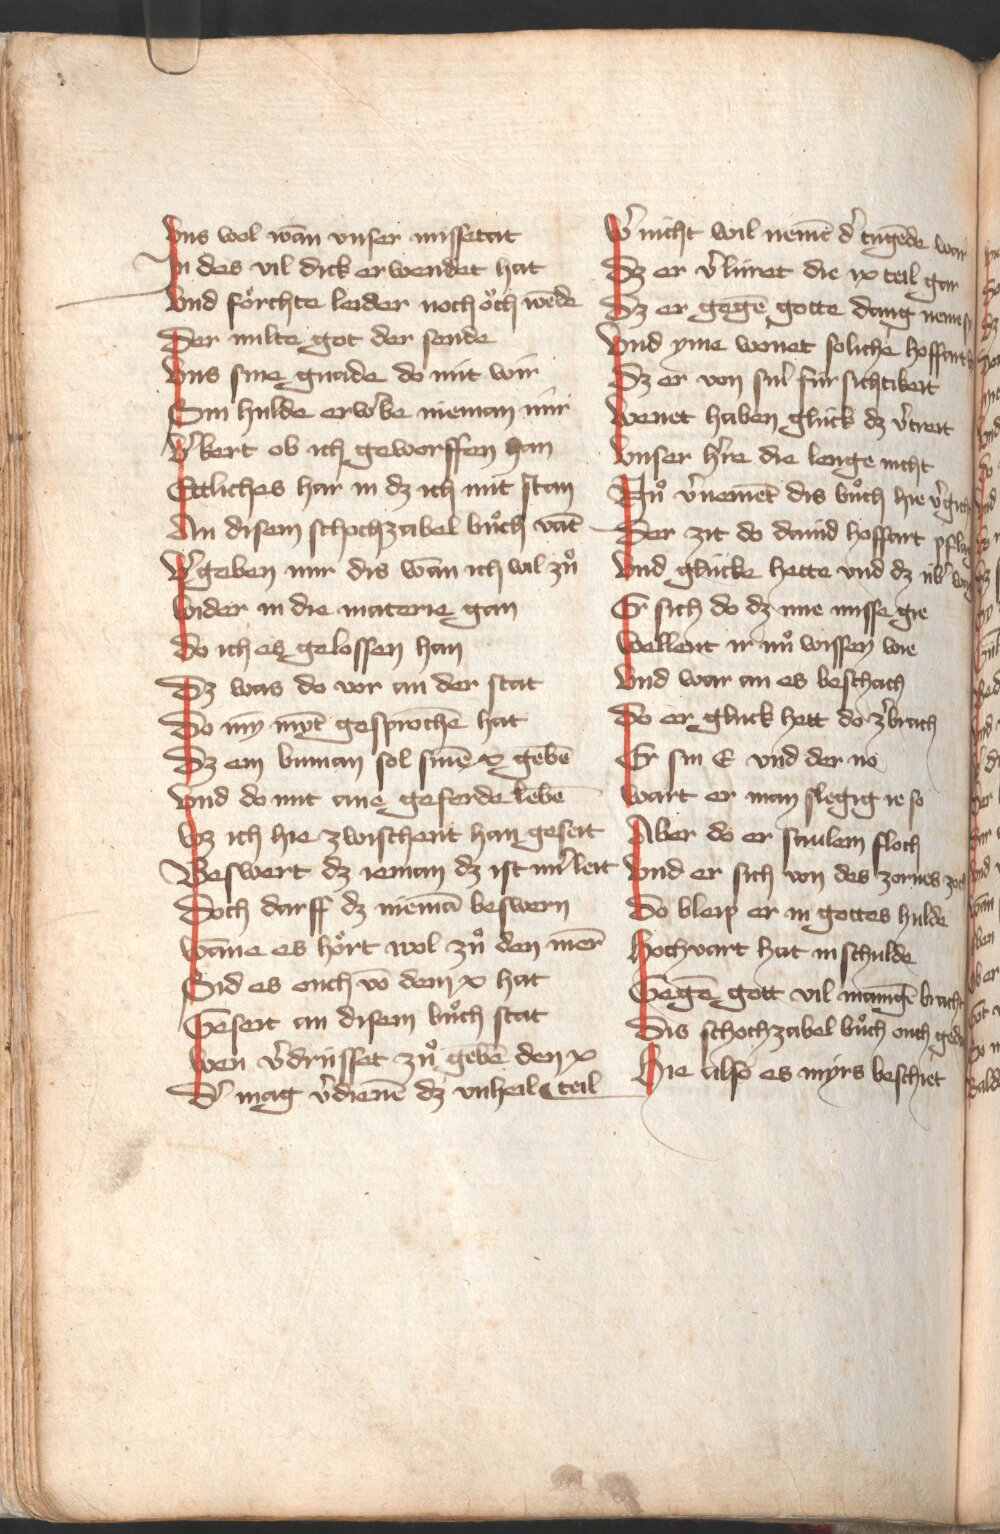 Vns wol wān vnser missetat
In des vil dick erwendet hat
Vnd förchte leider noch öch wēde
Der milte got der sende
Vns sine gnade do mit wir
Sin hulde erw'be nieman mir
V'kert ob ich geworffen han
Ettliches har in dz ich nüt stan
An disem schochzabel bůch vāt
V'geben mir dis wān ich wil zů
Wider in die materie gan
Do ich es gelossen han
Dz was do vor an der stat
Do mÿ mÿt gesprochē hat
Dz ein buman sol sinē x gebē
Vnd do mit ane geferde lebē
Wz ich hie zwischent han geseit
Beswert dz ieman dz ist mir leit
Doch darff dz niemā beswern
Wāne es hört wol zů den mer
Sid es ouch vō dem x hat
Geseit an disem bůch stat
Wen v'drüsset zů gebē den x
D' mag v'dienē dz vnheil teil
W' nicht wil nemē d' tugēde war
Dz er v'lüret die ix teil gar
Dz er gegē gotte dang
Vnd yme wenet soliche hoffart
Dz er von sin' für sichtikeit
Wenet haben glück dz v'treit
Vnser h're die lenge nicht
Nů v'nemēt dis bůch hie
Der zit do dauid hoffart pflag
Vnd glücke hette vnd dz üb'
Er sich do dz ime misse gie
Wellent ir nů wissen wie
Vnd war an es beschach
Do er glück hett do z'brach
Er sin E vnd der no
Wart er man slegig ie so
Aber do er saulem floch
Vnd er sich von des zornes zoch
Do bleip er in gottes hulde
Hochvart hat in schulde
Gegē gott vil manigē bracht
Dis schochzabel bůch ouch
Hie also es mÿrs beschiet